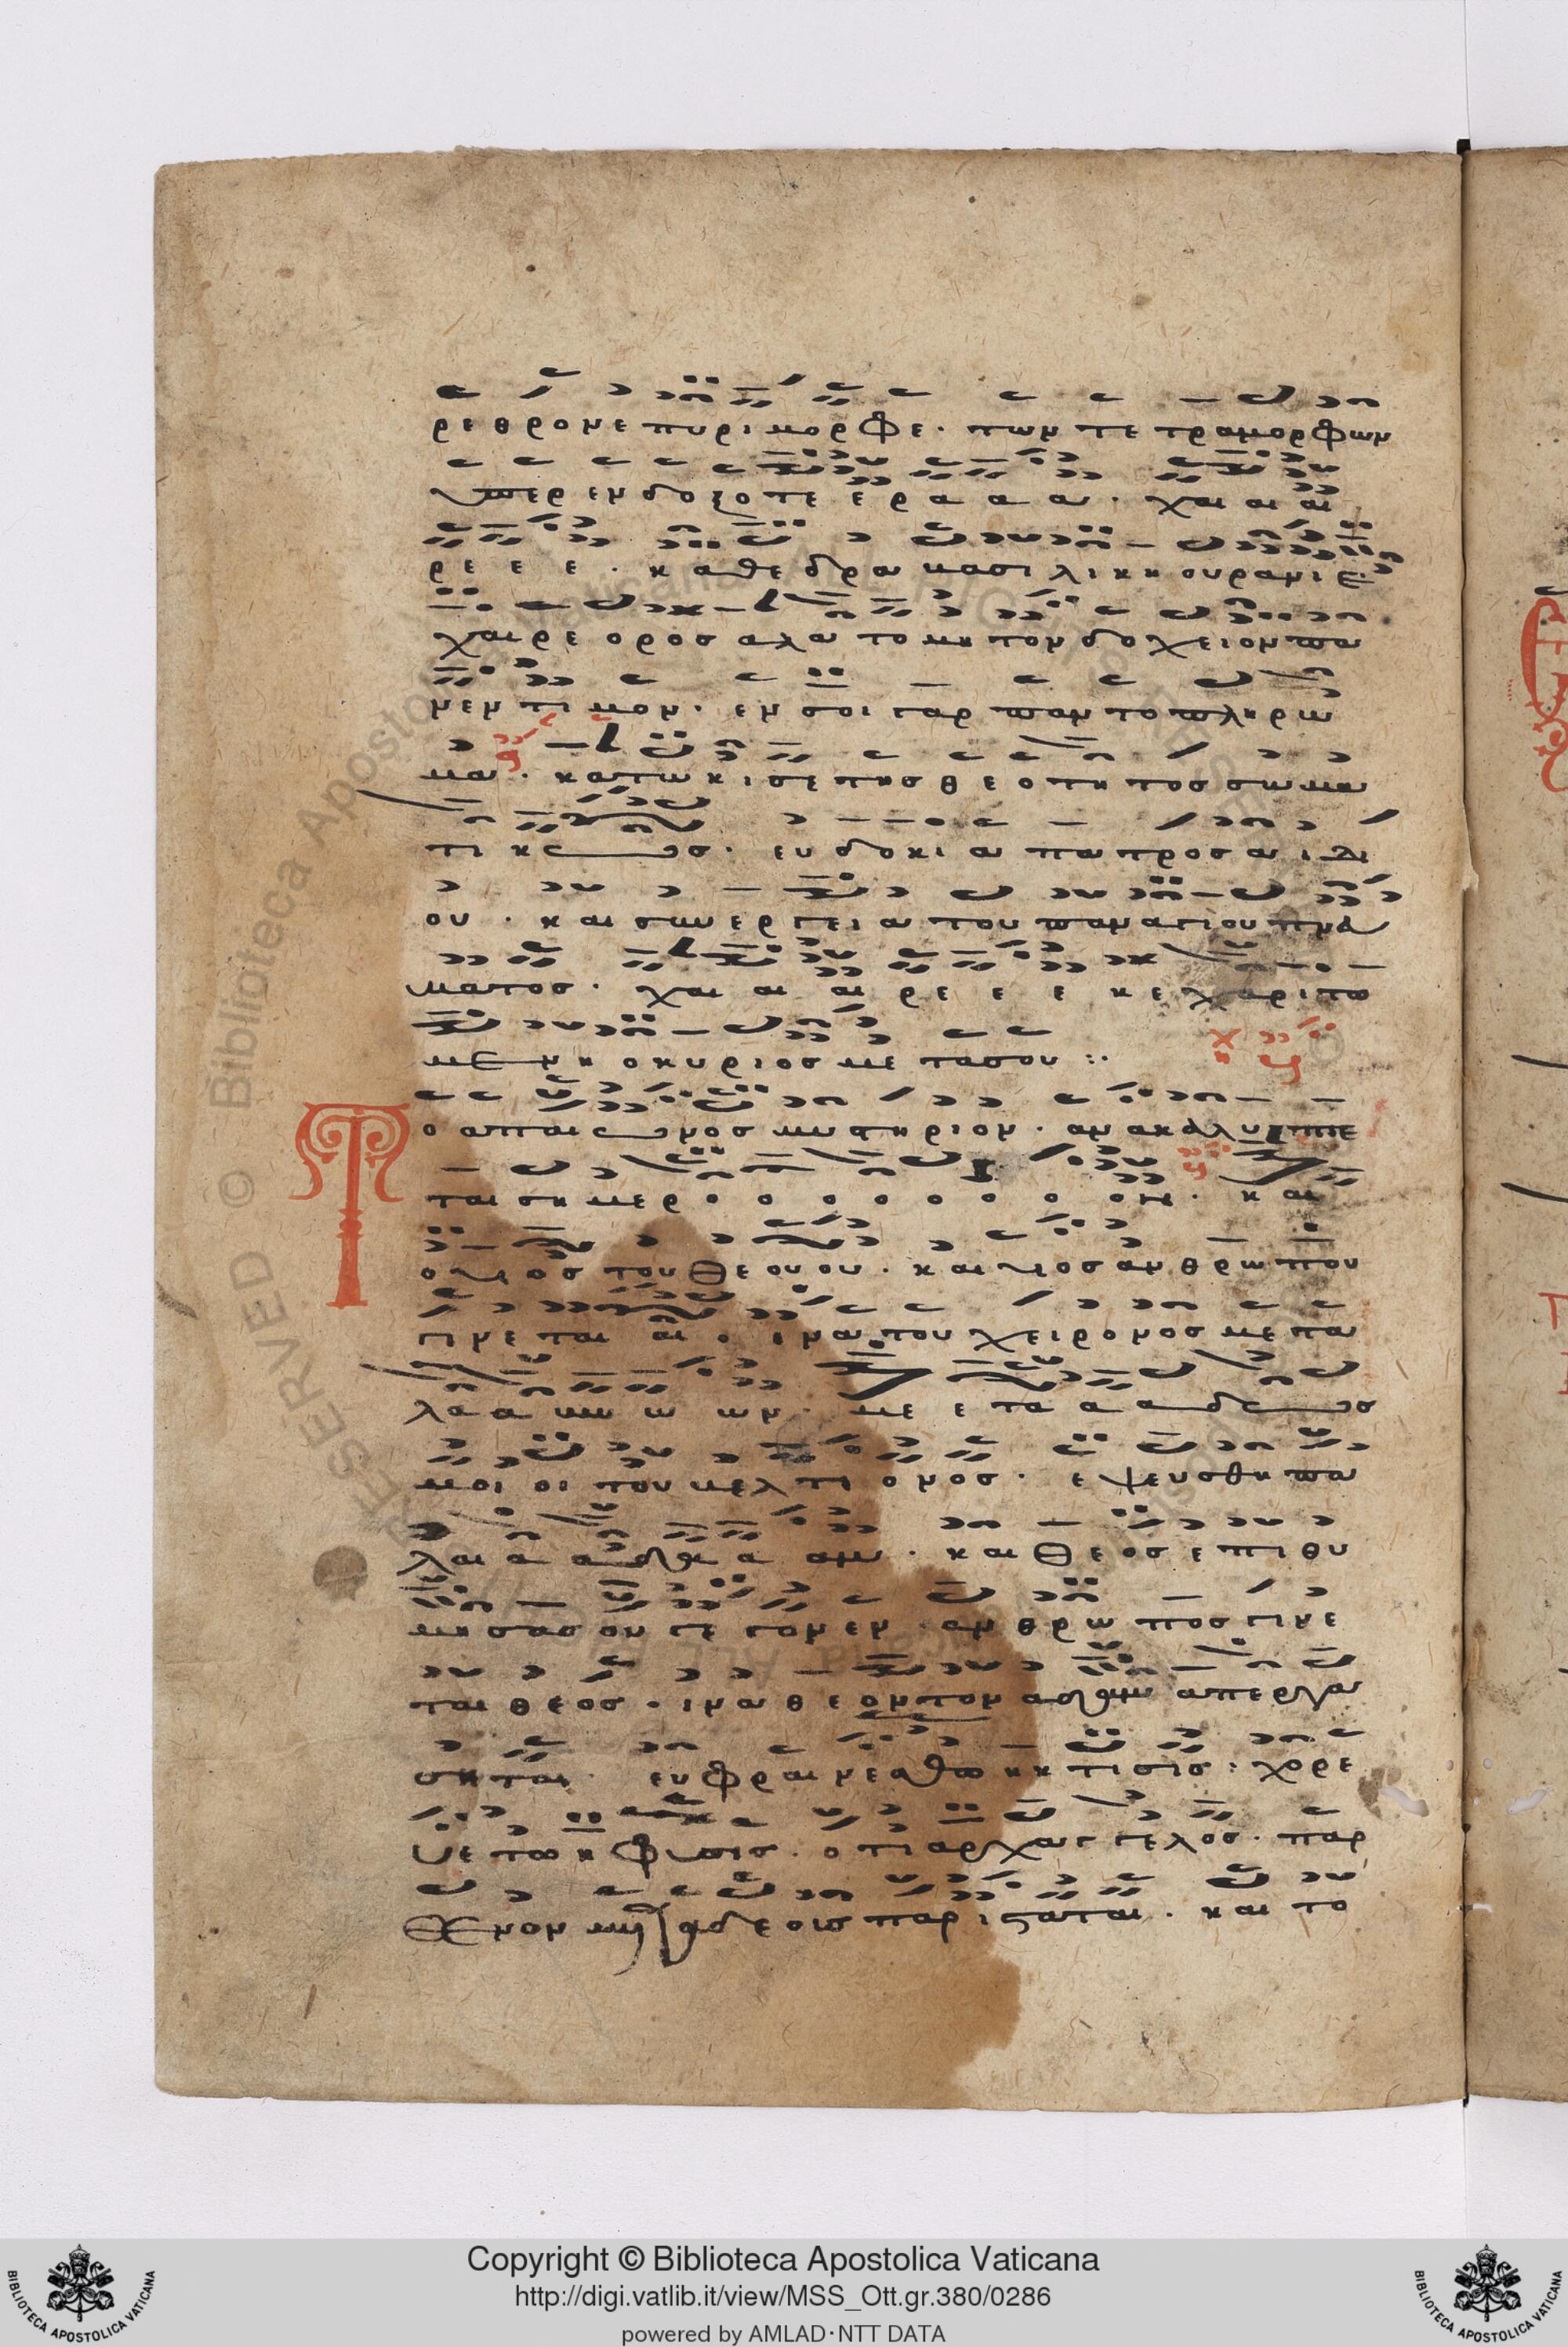 ρε θρονε πυριμορφε · των τετραμορφων
υπερενδοξοτε ε ρα α α · χαι αι αι
ρε ε ε ε · καθεδρα βασιλικη ουρανιε
χαιρε ορος αλατομητον δοχειον πα
νεντιμον · εν σοι γαρ παν το πληρω
μα · κατωκισε της θεοτητος σωμα
τικως · ευδοκια πατρος αιδι
ου · και συνεργεια του παναγιου πνευ
ματος · χαι αι αι ρε ε ε κεχαριτω
μενη ο κυριος μετα σου :·
Το απ αιωνος μυστηριον · ανακαλυπτε
ται σημερο ο ο ο ο ο ο ο ον · και
ο υιος του Θεου ου · και υιος ανθρωπου
γινεται αι · ινα του χειρονος μετα
λα α βω ω ων · με ε τα α α δως
μοι οι του βελτιονος · εψευσθη πα
λαι α α δα α αμ · και Θεος επιθυ
μησας ου γεγονεν · ανθρωπος γινε
ται θεος · ινα θεον τον αδαμ απεργα
σηται · ευφραινεσθω η κτισις · χορε
υετω η φυσις · οτι αρχαγγελος · παρ
θενον μετα δεους παρισταται · και το
Copyright © Biblioteca Apostolica Vaticana
http://digi.vatlib.it/view/MSS_Ott.gr.380/0286
powered by AMLAD·NTT DATA